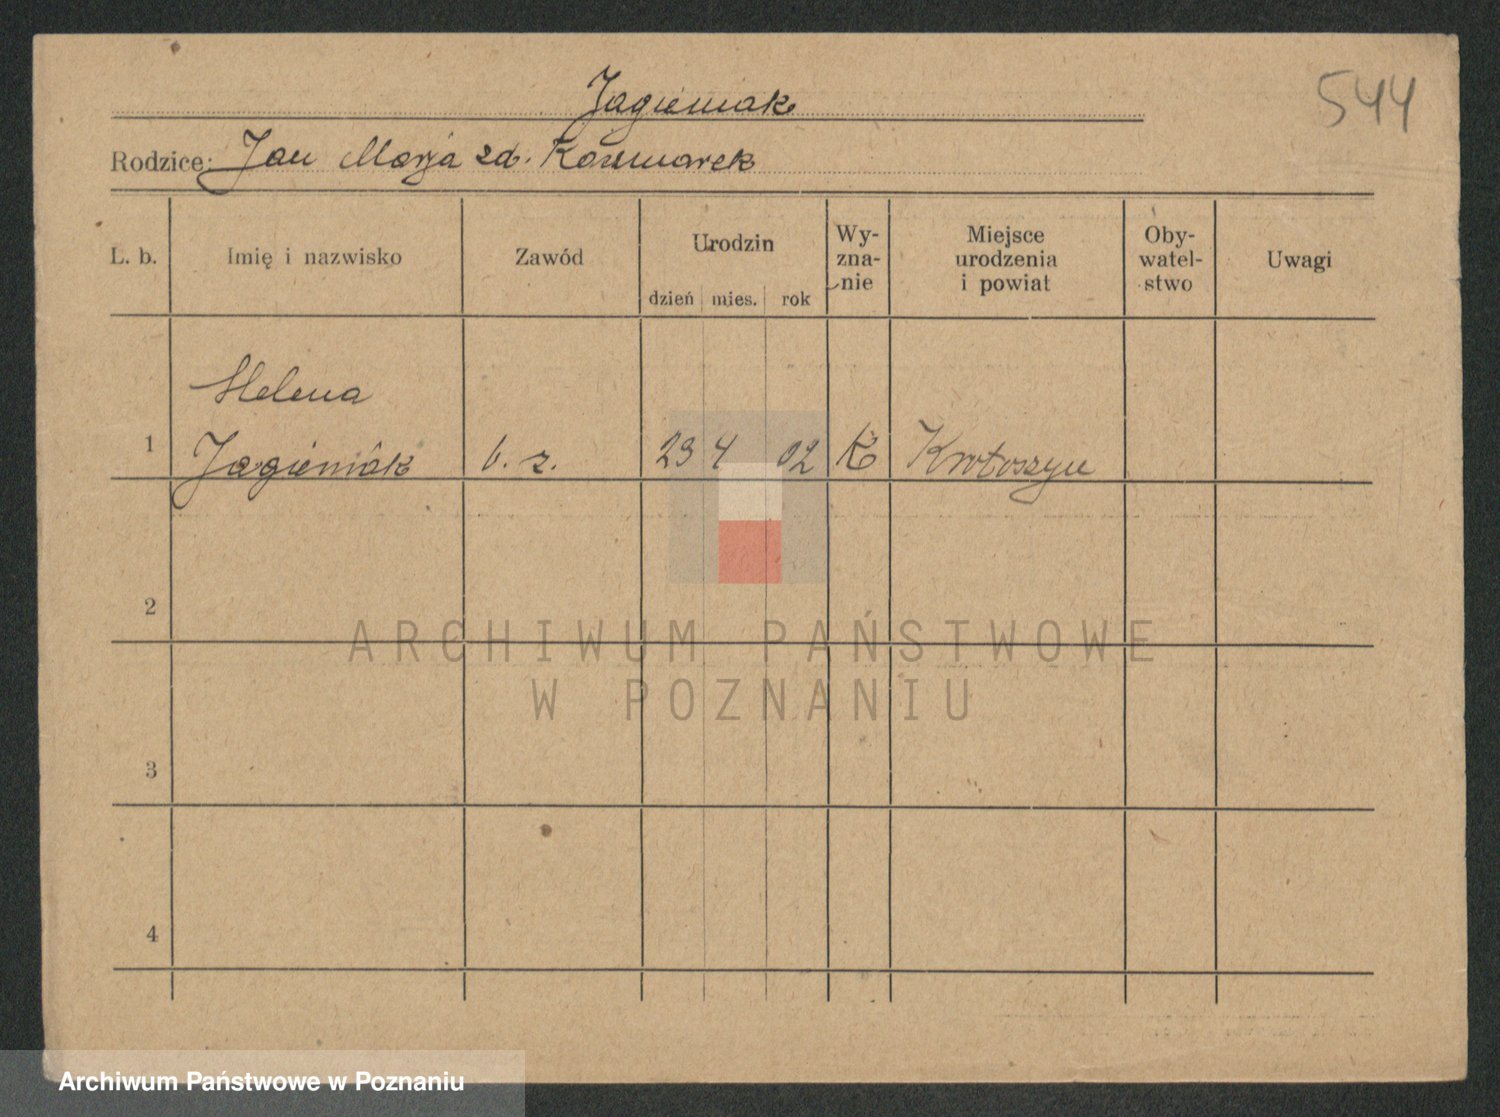 Jagieniak
544
Rodzice: Jan Marja zd. Kaczmarek
L. b.
Imię i nazwisko
Zawód
Urodzin
dzień mies. rok
Wy-
zna-
nie
Miejsce
urodzenia
i powiat
Oby-
watel-
stwo
Uwagi
Helena
1 Jagieniak b. z. 23 4 02 K Krotoszyn
2
ARCHIWUM PAŃSTWOWE
W POZNANIU
3
4
Archiwum Państwowe w Poznaniu